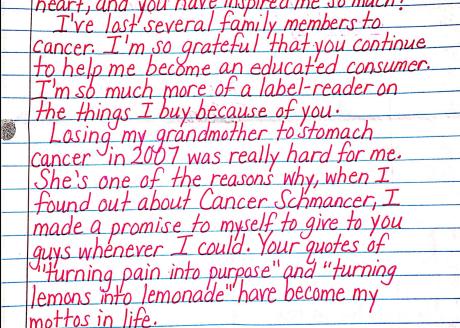 heart, and you have inspired me so much!
I've lost several family members to
cancer. I'm so grateful that you continue
to help me become an educated consumer.
I'm so much more of a label-reader on
the things I buy because of you.
Losing my grandmother to stomach
cancer in 2007 was really hard for me.
She's one of the reasons why, when I
found out about Cancer Schmancer, I
made a promise to myself to give to you
guys whenever I could. Your quotes of
"turning pain into purpose" and "turning
lemons into lemonade" have become my
mottos in life.